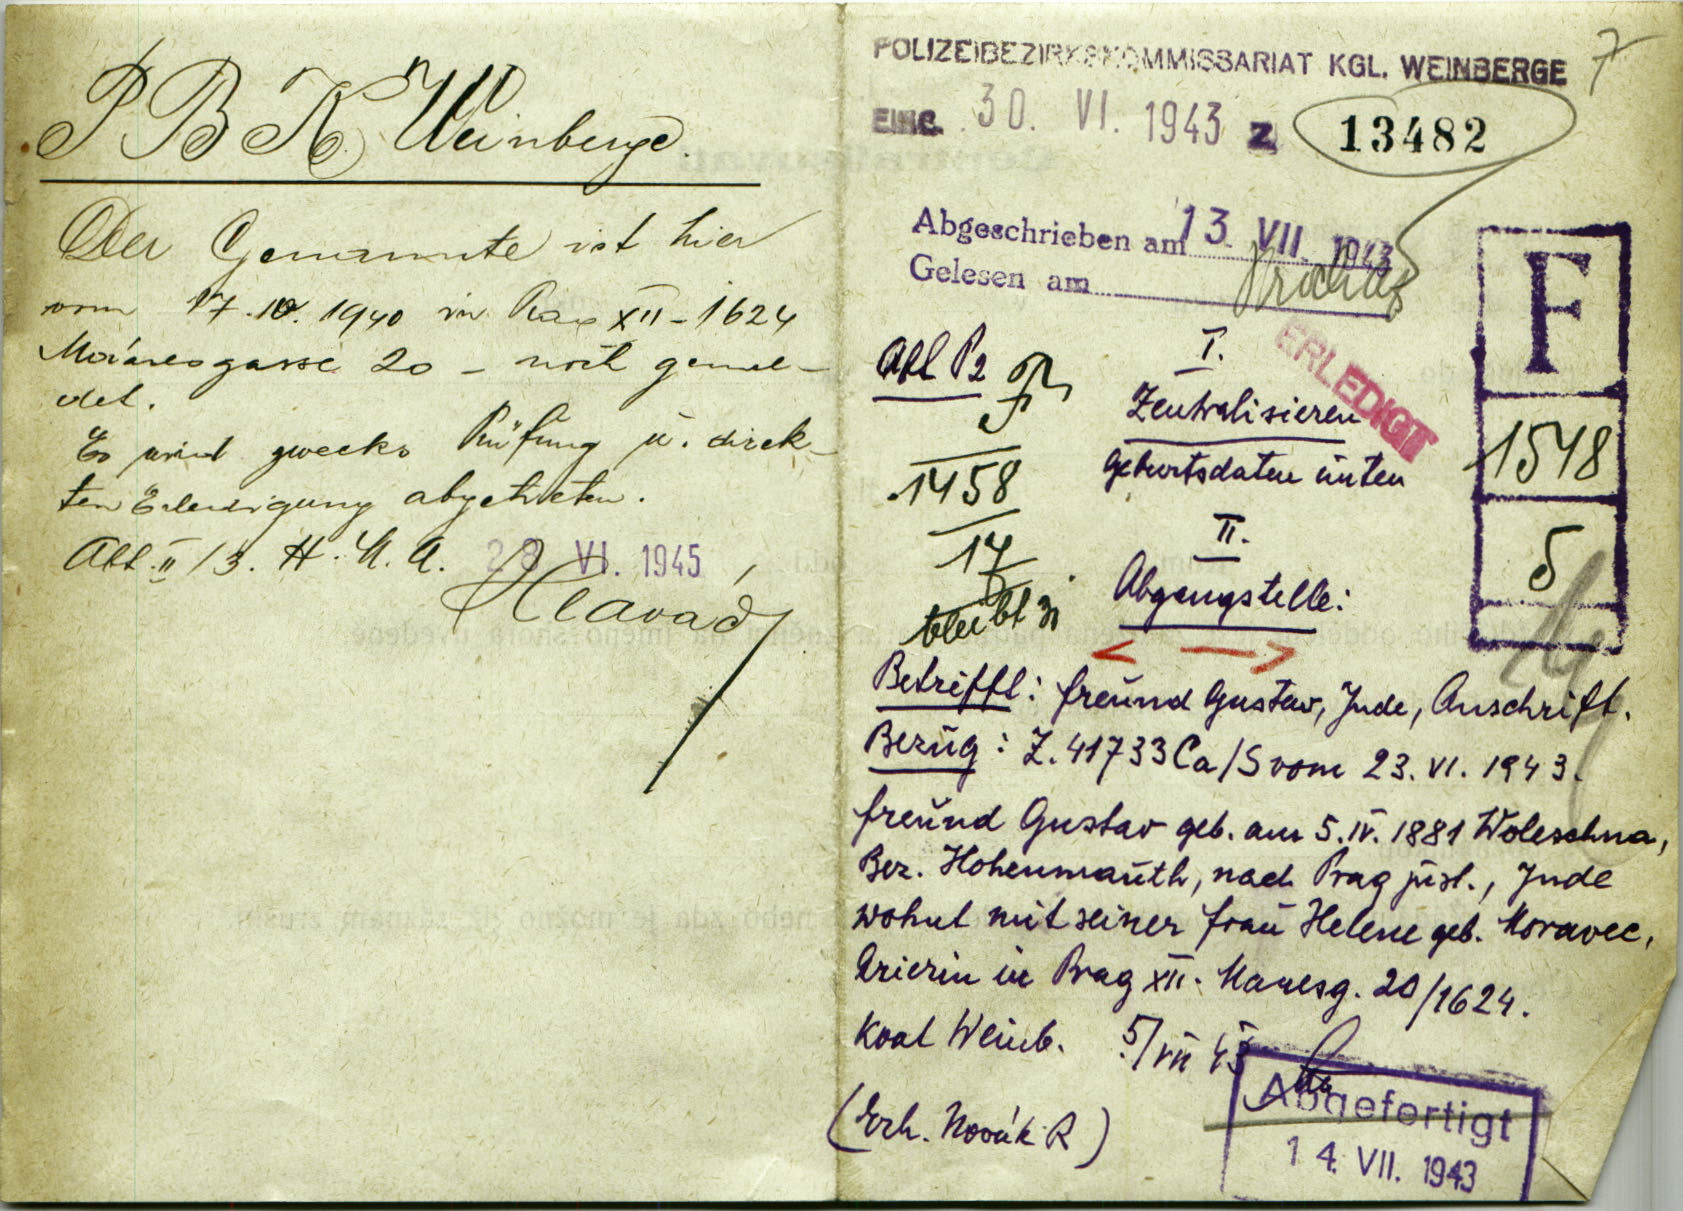 P B K Weinberge
Der Genannte ist hier
vom 17.10.1940 in Prag XII - 1624
Mánesgasse 20 - noch gemel-
det.
Es wird zwecks Prüfung u. direk-
ten Erledigung abgetreten.
Abt. II/3. H. M. A. 28 VI. 1945
Hlaváč
POLIZEIBEZIRKSKOMMISSARIAT KGL. WEINBERGE
7
EING. 30. VI. 1943 Z 13482
Abgeschrieben am 13. VII. 1943
Gelesen am
F
1548
5
ERLEDIGT
Abt P2
1458
17
bleibt
I.
Zentralisieren
Geburtsdaten unten
II.
Abgangstelle:
Betrifft: Freund Gustav, Jude, Anschrift.
Bezug: Z. 41733 Ca/S vom 23. VI. 1943.
Freund Gustav geb. am 5. IV. 1881 Woleschna,
Bez. Hohenmauth, nach Prag zust., Jude
wohnt mit seiner Frau Helene geb. Moravec,
Arierin in Prag XII. Manesg. 20/1624.
Koat Weinb. 5/VII 43
(Erh. Novák R)
Abgefertigt
14. VII. 1943